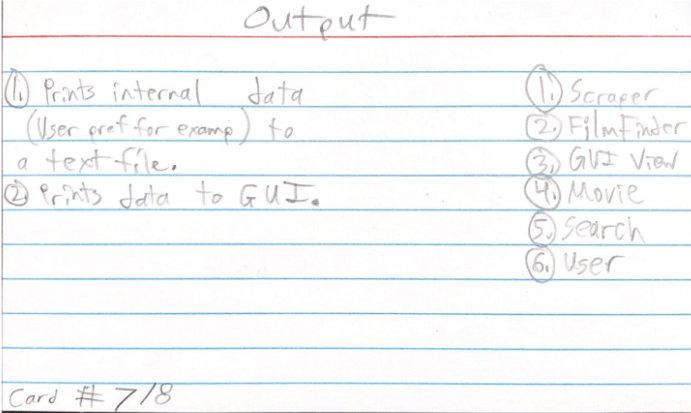 Output
1. Prints internal data
(User pref for examp) to
a text file.
2 Prints data to GUI.
1. Scraper
2. FilmFinder
3. GUI View
4. Movie
5. Search
6. User
Card # 7/8